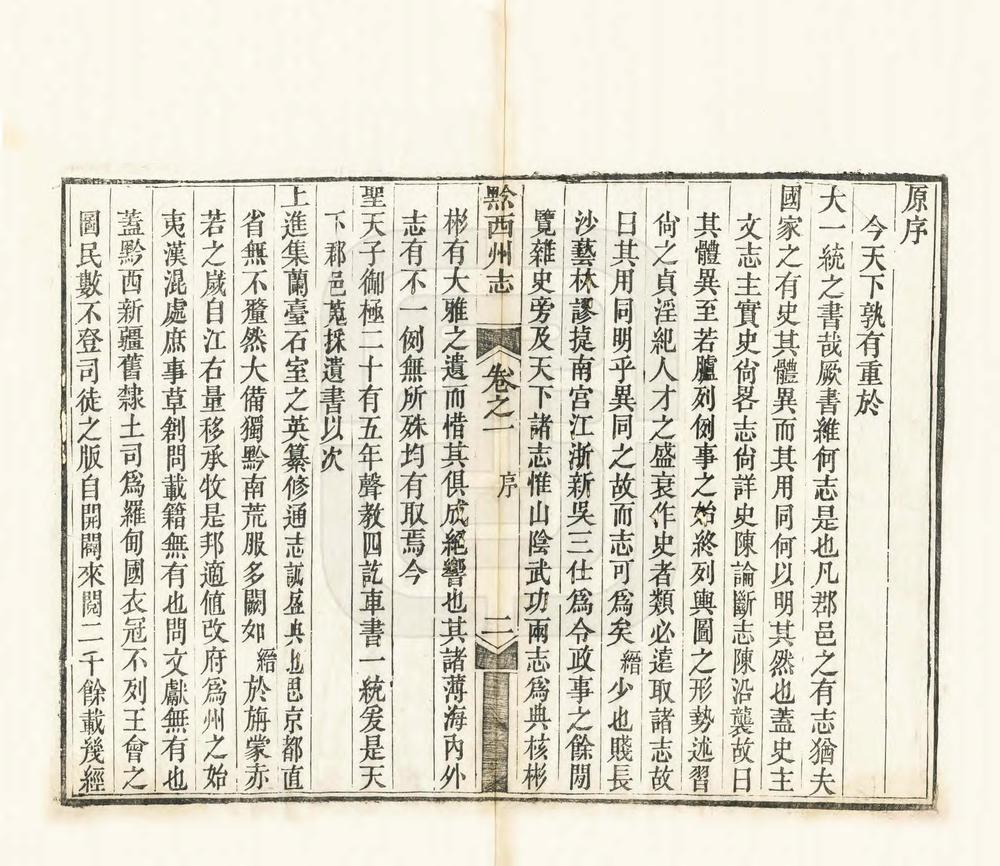 原序
今天下孰有重於
大一統之書哉厥書維何志是也凡郡邑之有志猶夫
國家之有史其體異而其用同何以明其然也蓋史主
文志主實史尙畧志尙詳史陳論斷志陳沿襲故曰
其體異至若臚列例事之始終列輿圖之形勢述習
尙之貞淫紀人才之盛衰作史者類必遠取諸志故
曰其用同明乎異同之故而志可爲矣縉少也賤長
沙藝林謬掟南宫江浙新吳三仕爲令政事之餘閒
覽雜史旁及天下諸志惟山陰武功兩志爲典核彬
黔西州志
卷之一
序
二
彬有大雅之遺而惜其俱成絕響也其諸薄海內外
志有不一例無所殊均有取焉今
聖天子御極二十有五年聲教四訖車書一統爰是天
下郡邑蒐採遺書以次
上進集蘭臺石室之英纂修通志誠盛典也思京都直
省無不釐然大備獨黔南荒服多闕如縉於旃蒙赤
若之歲自江右量移承牧是邦適値改府爲州之始
夷漢混處庶事草創問載籍無有也問文獻無有也
蓋黔西新疆舊隸土司爲羅甸國衣冠不列王會之
圖民數不登司徒之版自開闢來閱二千餘載幾經